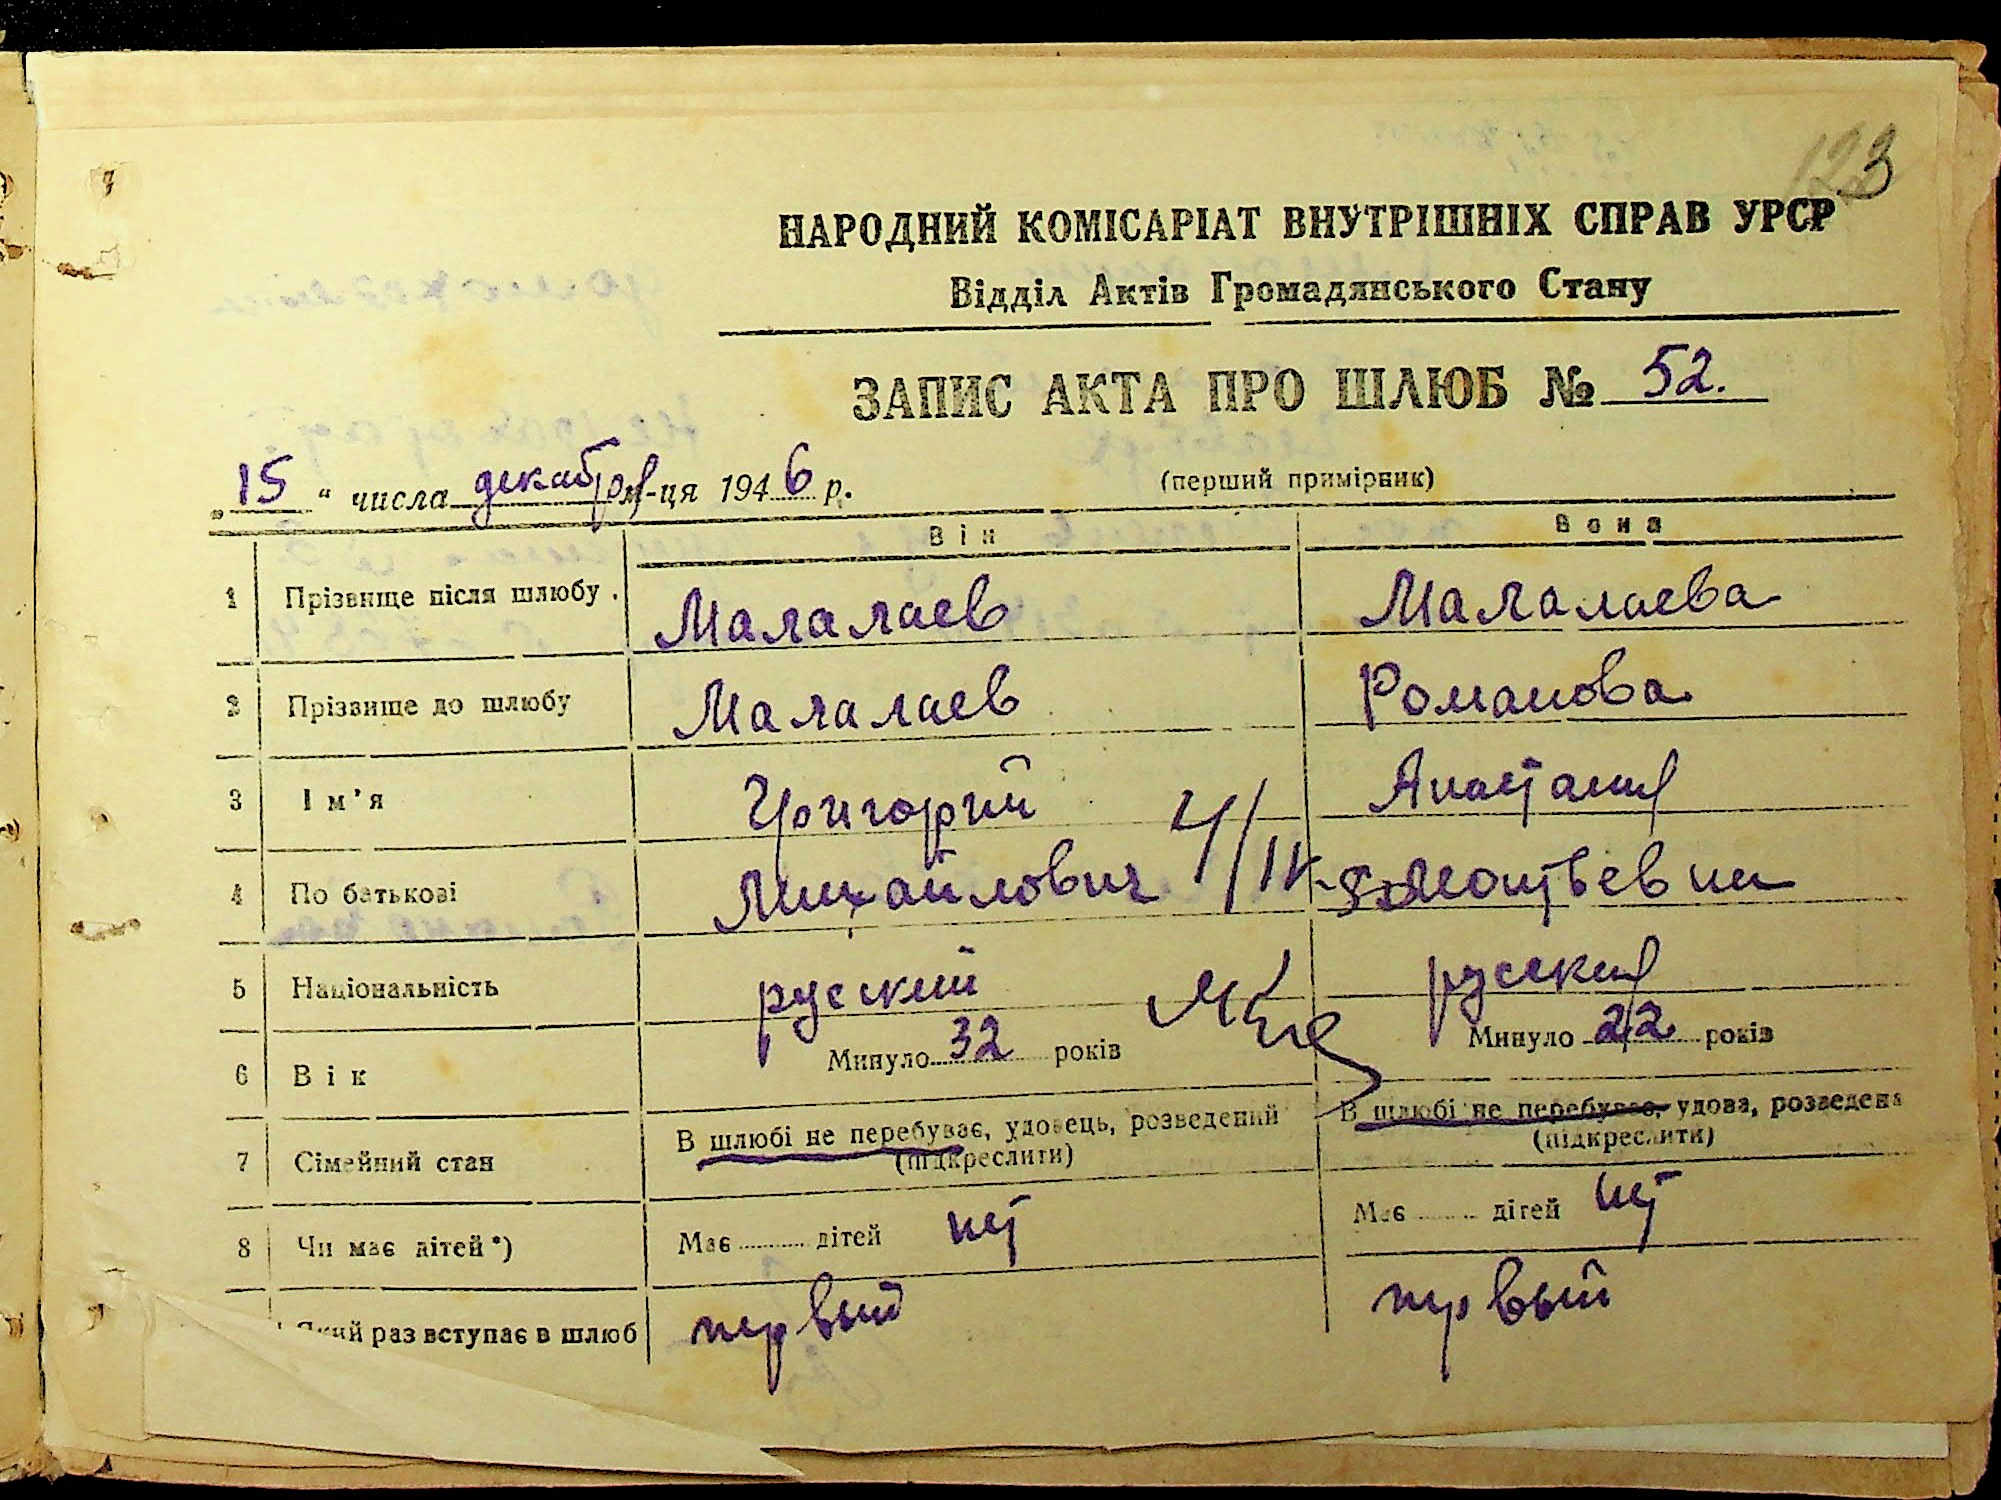 123
НАРОДНИЙ КОМІСАРІАТ ВНУТРІШНІХ СПРАВ УРСР
Відділ Актів Громадянського Стану
ЗАПИС АКТА ПРО ШЛЮБ № 52.
„15" числа декабря м-ця 1946 р.
(перший примірник)
Він Вона
1 Прізвище після шлюбу . Малалаев Малалаева
2 Прізвище до шлюбу Малалаев Романова
3 Ім'я Григорий Анастасия
4 По батькові Михайлович 4/IV-
5 Національність руский руская
6 Вік Минуло 32 років Минуло 22 років
7 Сімейний стан В шлюбі не перебуває, удовець, розведений В шлюбі не перебуває, удова, розведена
(підкреслити) (підкреслити)
8 Чи має дітей*) Має ........ дітей нет Має ........ дітей нет
Який раз вступає в шлюб первый первый